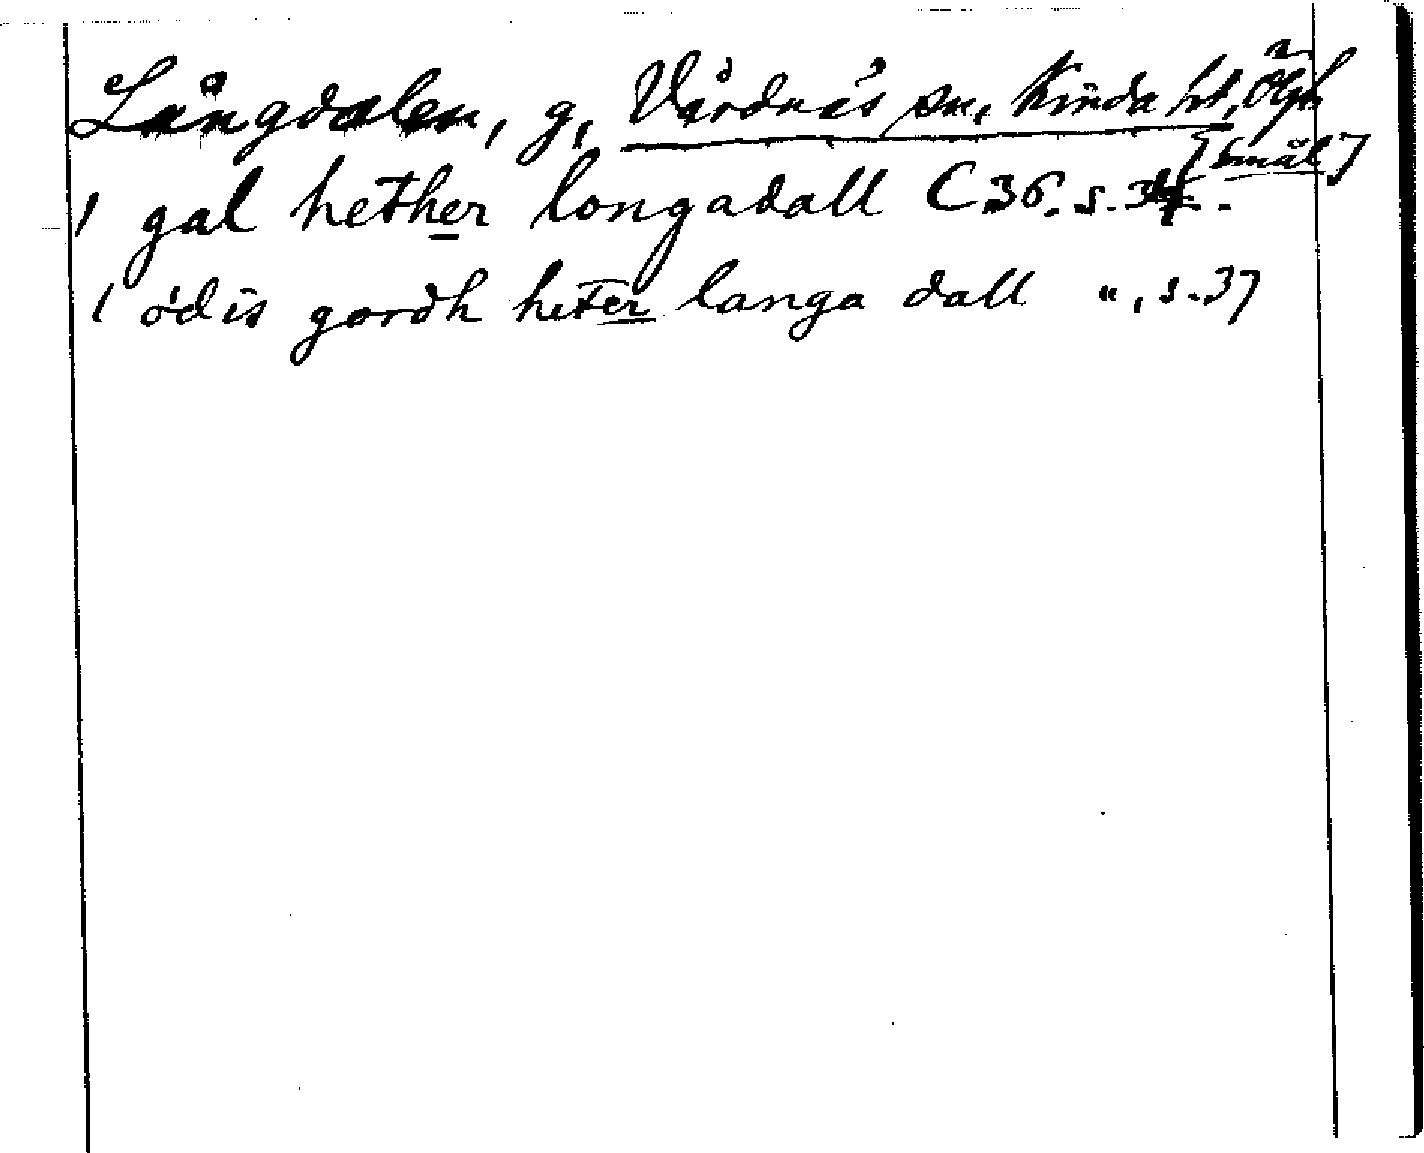 Långdalen, g, Vårdnäs sn, Kinda hd, Ög
[Smål]
1 gal hether longadall C 36. s. 34.
1 ödis gordh heter langa dall ", s. 37